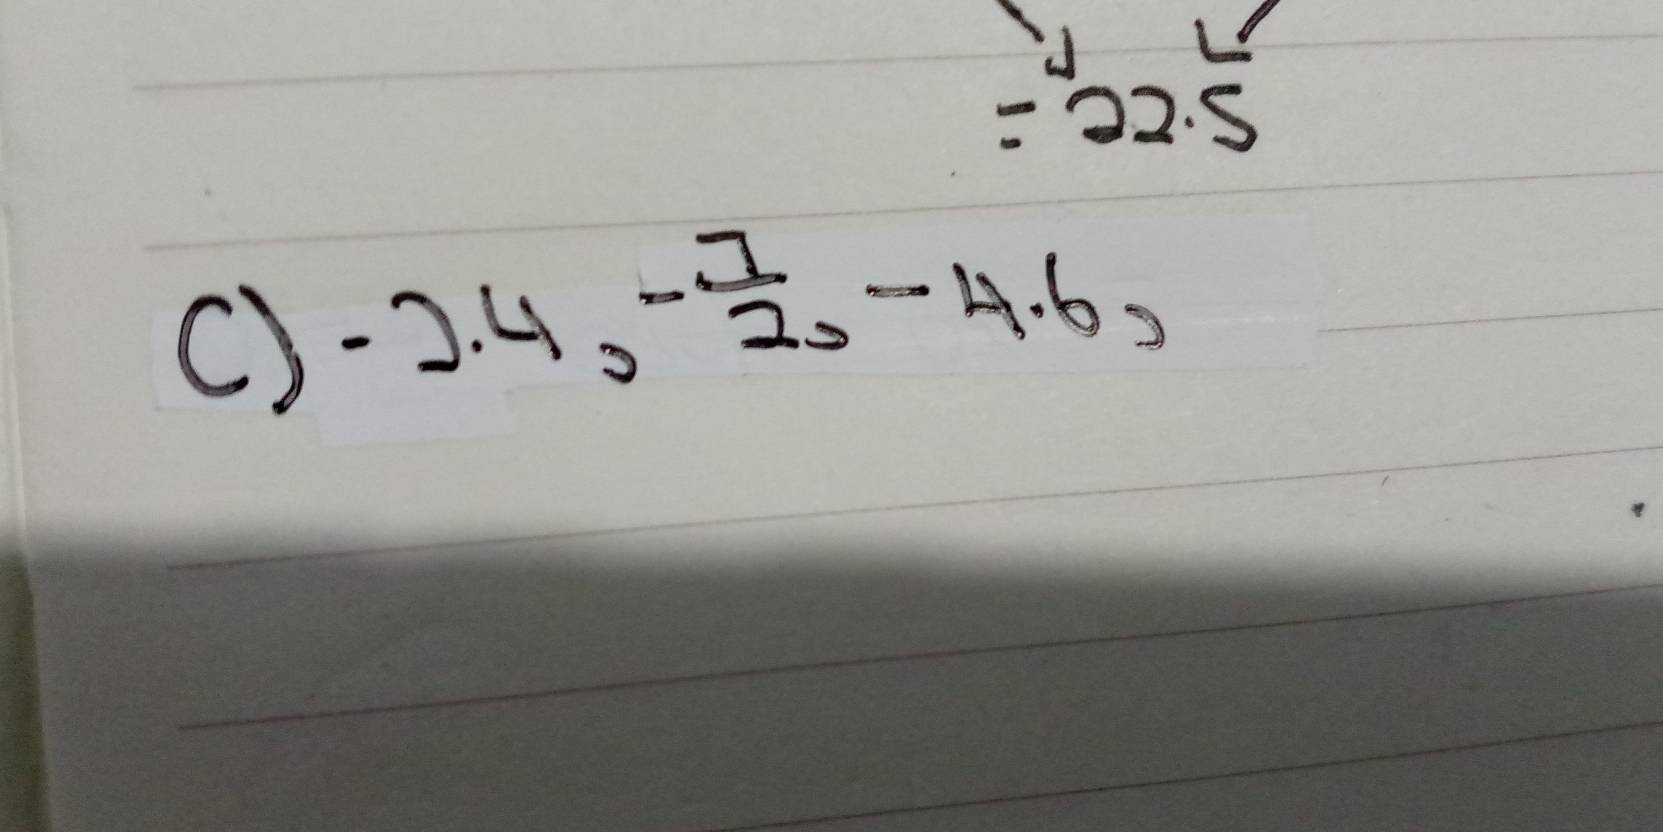 = 22.5
C) -2.4, -1/2, -4.6,